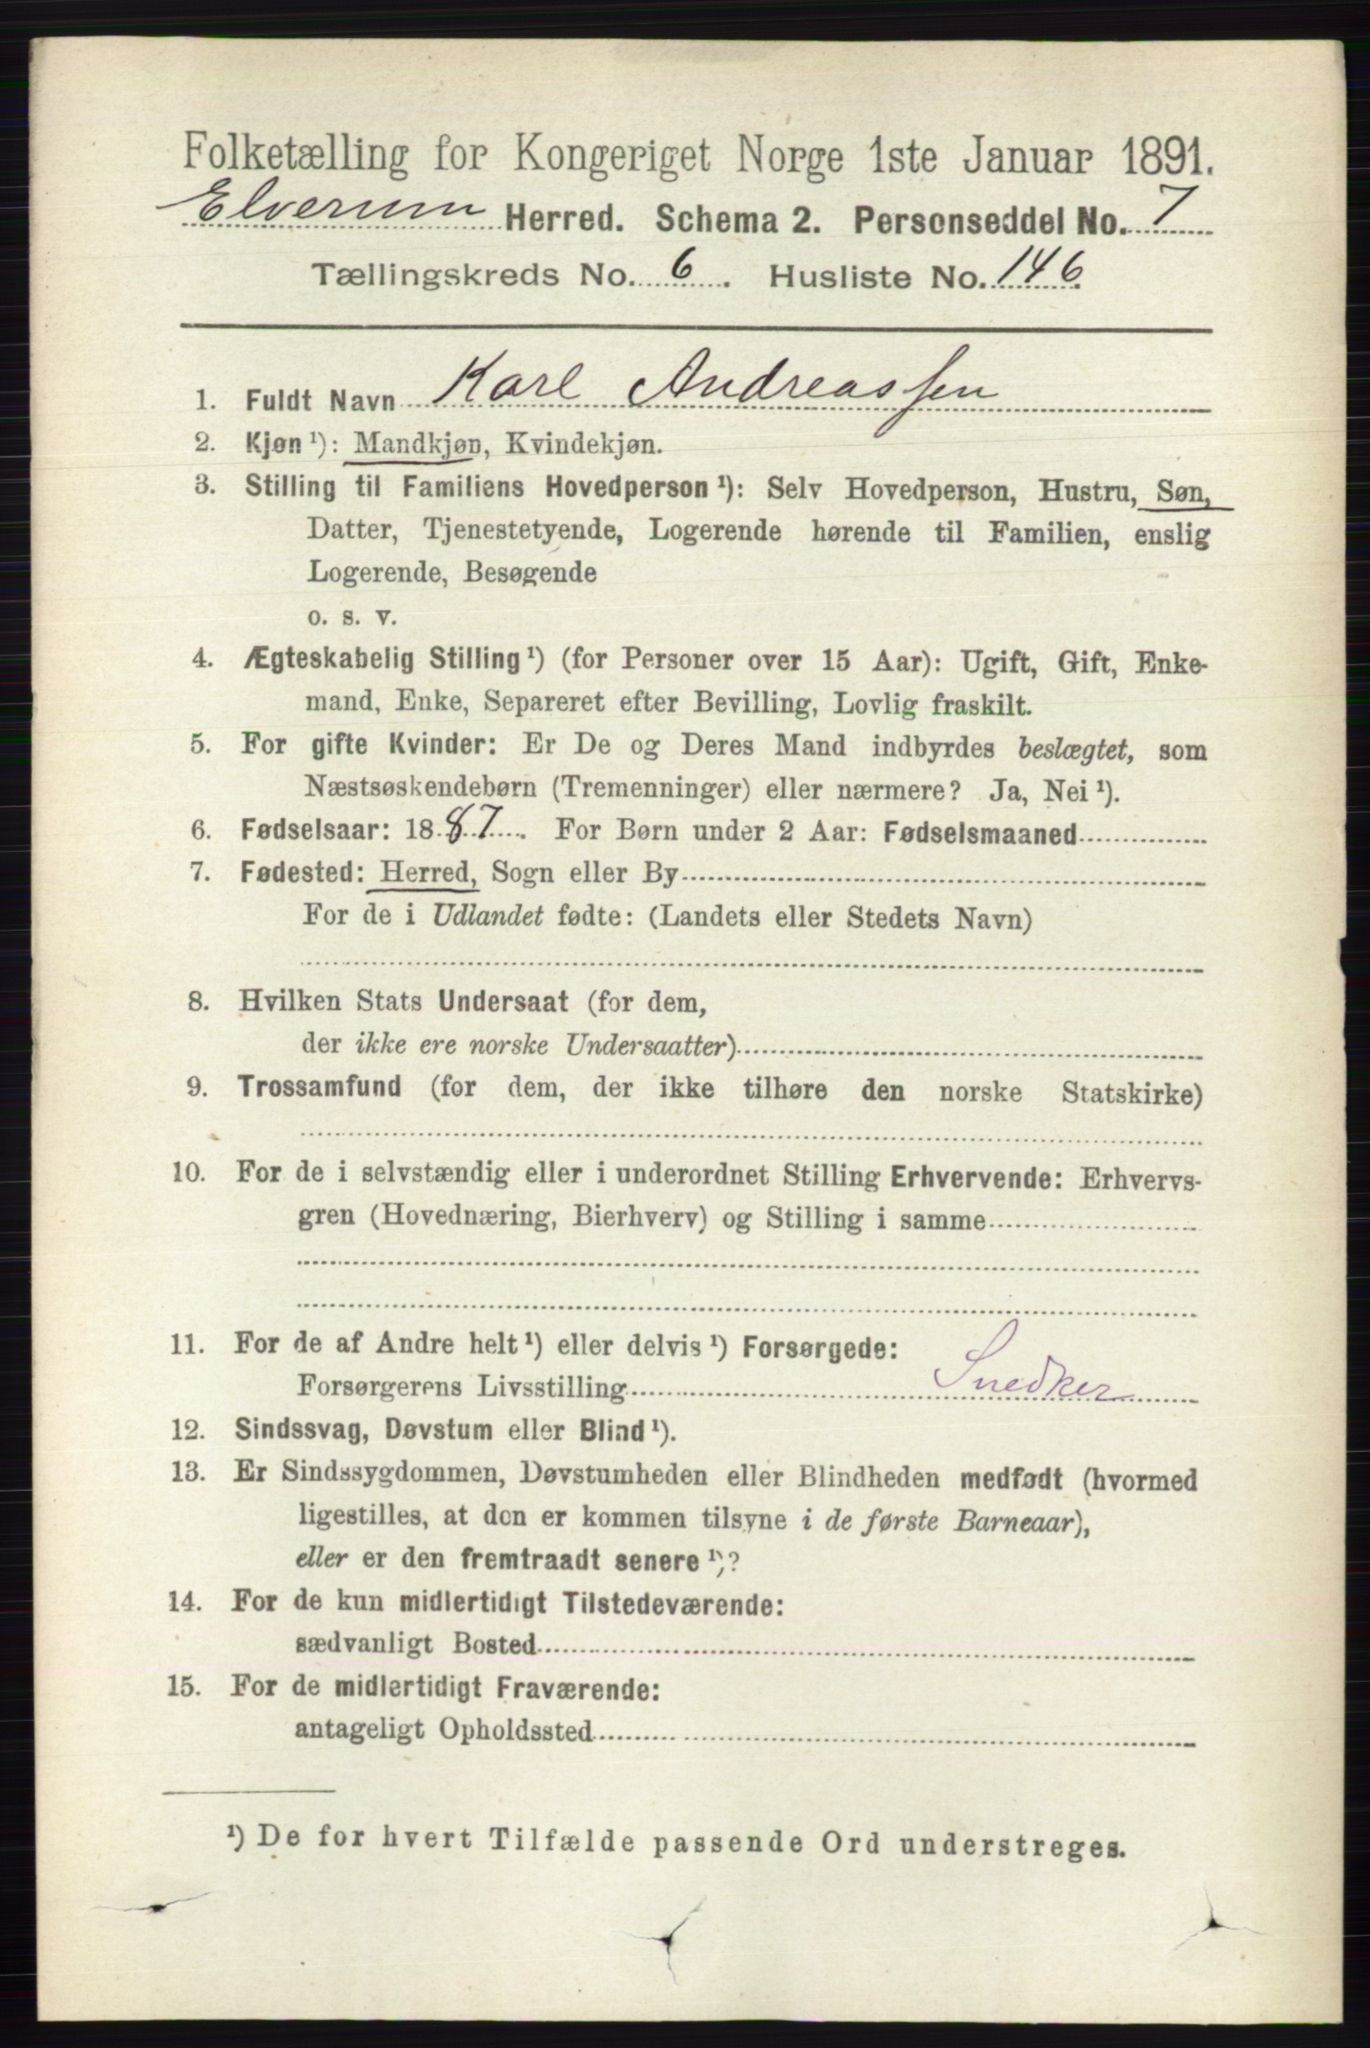 Folketælling for Kongeriget Norge 1ste Januar 1891.
Elverum Herred. Schema 2. Personseddel No. 7
Tællingskreds No. 6. Husliste No. 146
1. Fuldt Navn Karl Andreassen
2. Kjøn ¹): Mandkjøn, Kvindekjøn.
3. Stilling til Familiens Hovedperson ¹): Selv Hovedperson, Hustru, Søn,
Datter, Tjenestetyende, Logerende hørende til Familien, enslig
Logerende, Besøgende
o. s. v.
4. Ægteskabelig Stilling ¹) (for Personer over 15 Aar): Ugift, Gift, Enke-
mand, Enke, Separeret efter Bevilling, Lovlig fraskilt.
5. For gifte Kvinder: Er De og Deres Mand indbyrdes beslægtet, som
Næstsøskendebørn (Tremenninger) eller nærmere? Ja, Nei ¹).
6. Fødselsaar: 1887. For Børn under 2 Aar: Fødselsmaaned
7. Fødested: Herred, Sogn eller By
For de i Udlandet fødte: (Landets eller Stedets Navn)
8. Hvilken Stats Undersaat (for dem,
der ikke ere norske Undersaatter)
9. Trossamfund (for dem, der ikke tilhøre den norske Statskirke)
10. For de i selvstændig eller i underordnet Stilling Erhvervende: Erhvervs-
gren (Hovednæring, Bierhverv) og Stilling i samme
11. For de af Andre helt ¹) eller delvis ¹) Forsørgede:
Forsørgerens Livsstilling Snedker
12. Sindssvag, Døvstum eller Blind ¹).
13. Er Sindssygdommen, Døvstumheden eller Blindheden medfødt (hvormed
ligestilles, at den er kommen tilsyne i de første Barneaar),
eller er den fremtraadt senere ¹)?
14. For de kun midlertidigt Tilstedeværende:
sædvanligt Bosted
15. For de midlertidigt Fraværende:
antageligt Opholdssted
¹) De for hvert Tilfælde passende Ord understreges.